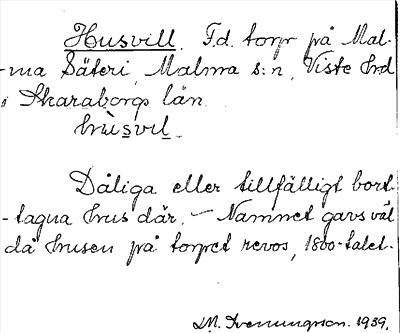 Husvill. F.d. torp på Mal-
-ma Säteri, Malma s:n, Viste hd
i Skaraborgs län.
hùsvil.
Dåliga eller tillfälligt bort-
-tagna hus där. – Namnet gavs väl
då husen på torpet revos, 1800-talet.
M. 1939.